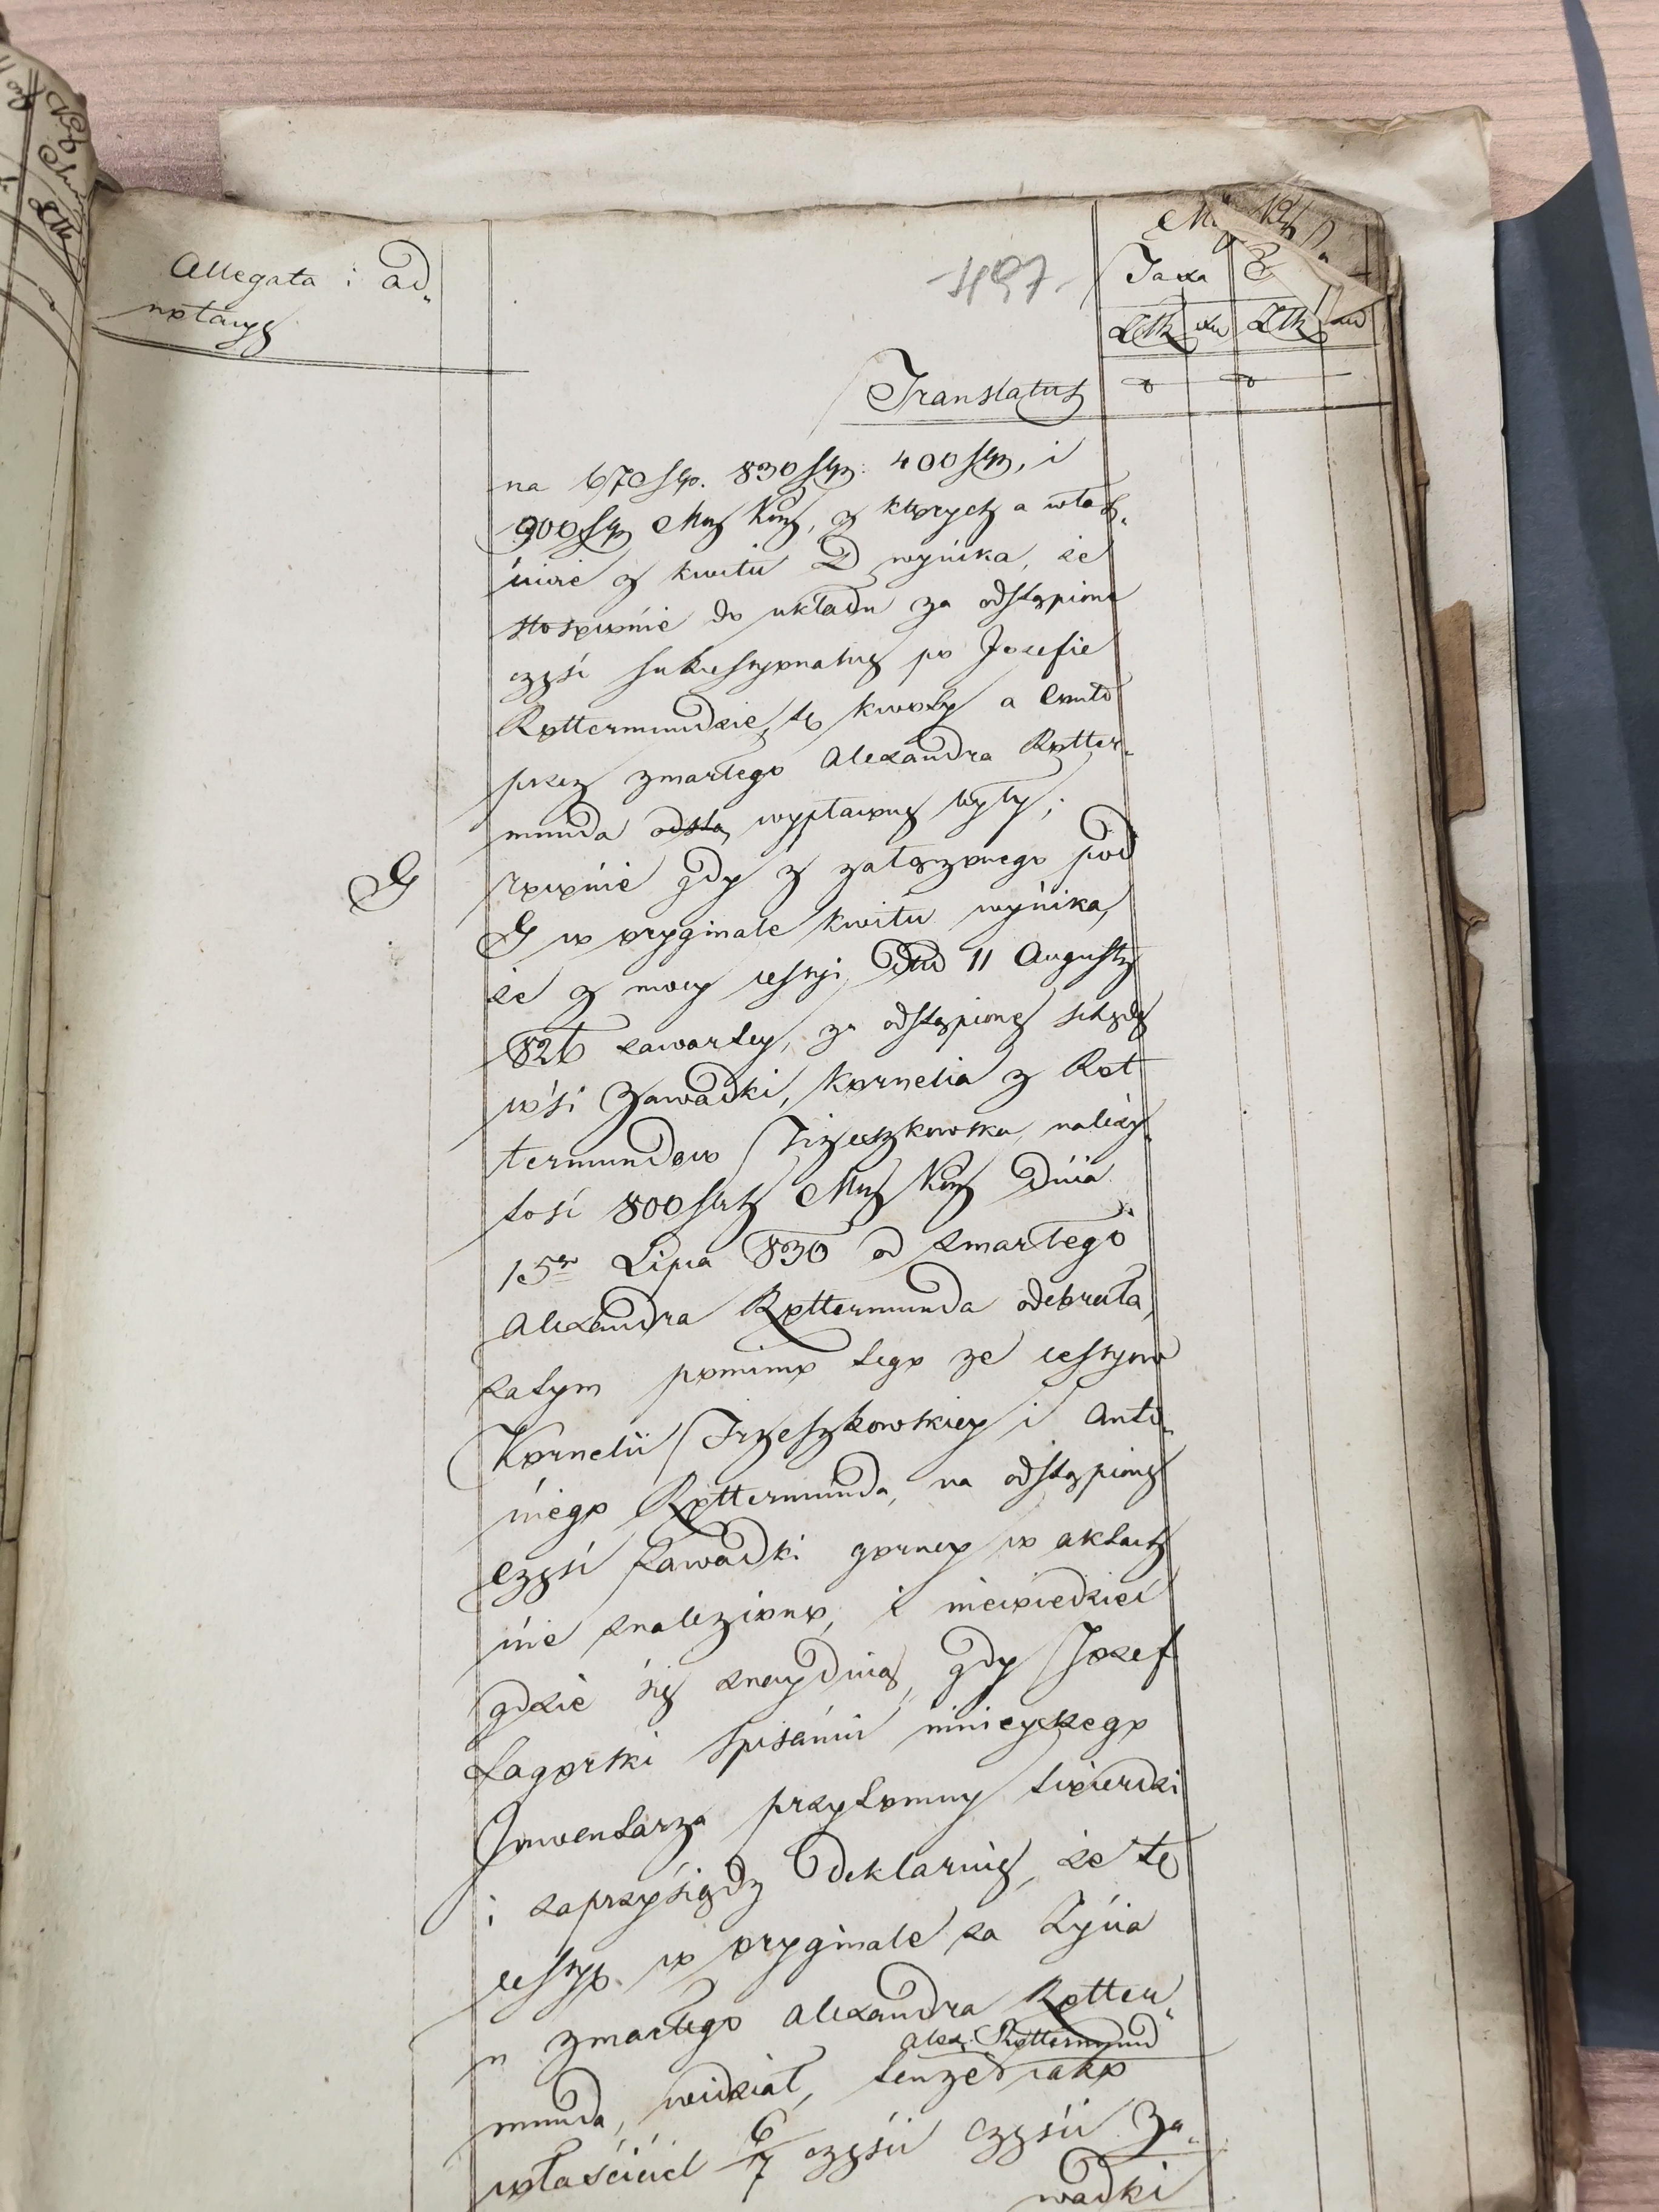 Allegata i ad„
notacye
-497-
Taxa
ZłR xu ZłR
Translatus
na 670 Złr. 830 Złr. 400 Złr, i
900 Złr Mny Kony, z ktorych a właś„
ciwie z kwitu D wynika, że
stosownie do układu za odstąpiona
część sukcessyonalną po Jozefie
Rottermundzie, te kwoty a conto
przez zmarłego Alexandra Rotter„
munda odstą wypłacone były;
G
rownie gdy z załączonego pod
G w oryginale kwitu wynika,
że z mocy cessyi, Ddto 11 Augusty
826 zawartey, za odstąpioną schedę
wsi Zawadki, Kornelia z Rot
termundow Trzeszkowska, należy„
tość 800 Złr Mny Kony Dnia
15go Lipca 830 od zmarłego
Alexandra Rottermunda odebrała,
zatym pomimo tego ze cessyow
Kornelii Trzeszkowskiey i Anto„
niego Rottermunda, na odstąpioną
część Zawadki gorney w aktach
nie znaleziono, i niewiedzieć
gdzie się znaydują, gdy Jozef
Zagorski spisaniu ninieyszego
Inwentarza przytomny twierdzi
i zaprzysiądz deklaruie, że te
cessye w oryginale za życia
u zmarłego Alexandra Rotter„
munda, widział, tenże Alex. Rottermund jako
właściciel 6/7 części części Za„
wadki